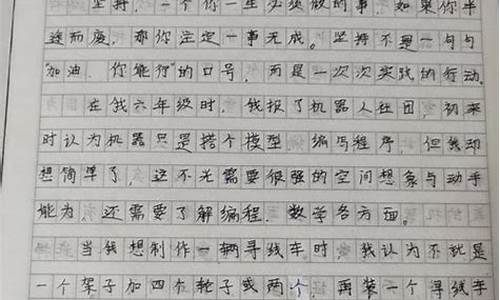 坚持,一个你一生必须做的事,如果你半
途而废,那你注定一事无成。坚持不是一句句
“加油、你能行”的口号,而是一次次实践的行动。
在我六年级时,我报了机器人社团,初来
时认为机器只是搭个模型,编写程序,但我却
想简单了,这不光需要很强的空间想象与动手
能为,还需要了解编程,数学各方面。
当我想制作一辆寻线车时,我认为不就是
一个架子加四个轮子或两个,再装一个寻线车